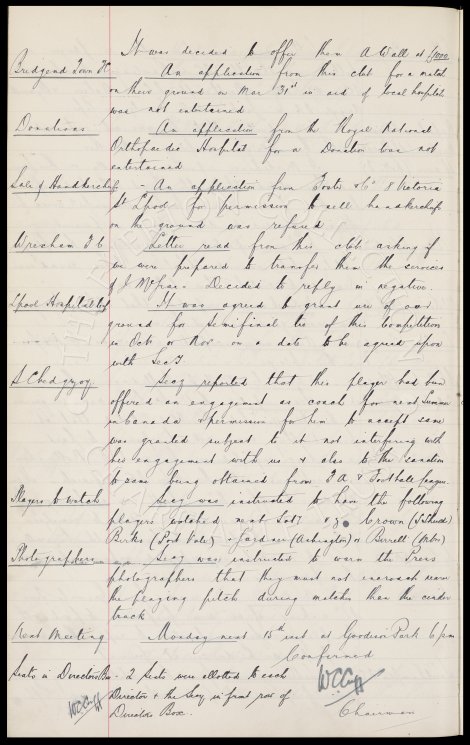 It was decided to offer them A Wall at
Bridgend Town FC An application from this club for a match
on their ground on Mar 31st in aid of local hospitals
was not entertained
Donations An application from the Royal National
Orthopaedic Hospital for a Donation was not
entertained
Sale of Handkerchiefs - An application from Foster & Co 8 Victoria
St Lpool for permission to sell handkerchiefs
on the ground was refused
Wrexham FC Letter read from this club asking if
we were prepared to transfer them the services
of J Decided to reply in negative.
Lpool Hospital Cup It was agreed to grant use of our
ground for Semifinal tie of this Competition
in Oct or Nov on a date to be agreed upon
with Secy.
S Chedgzoy Secy reported that this player had been
offered an engagement as coach for next Summer
in Canada & permission for him to accept same
was granted subject to it not interfering with
his engagement with us & also to the sanction
to same being obtained from F A & Football League
Players to watch Secy was instructed to have the following
players watched next Saty Brown
Birks (Port Vale) - Gordon (Ashington) or Birrell
Photographers Secy was instructed to warn the Press
photographers that they must not encroach nearer
the playing pitch during matches than the cinder
track
Next Meeting Monday next 15th inst at Goodison Park 6 pm
Confirmed
Seats in Directors Box - 2 Seats were allotted to each
Director & the Secy in front row of
Directors Box.
WCCuff
WCCuff
Chairman